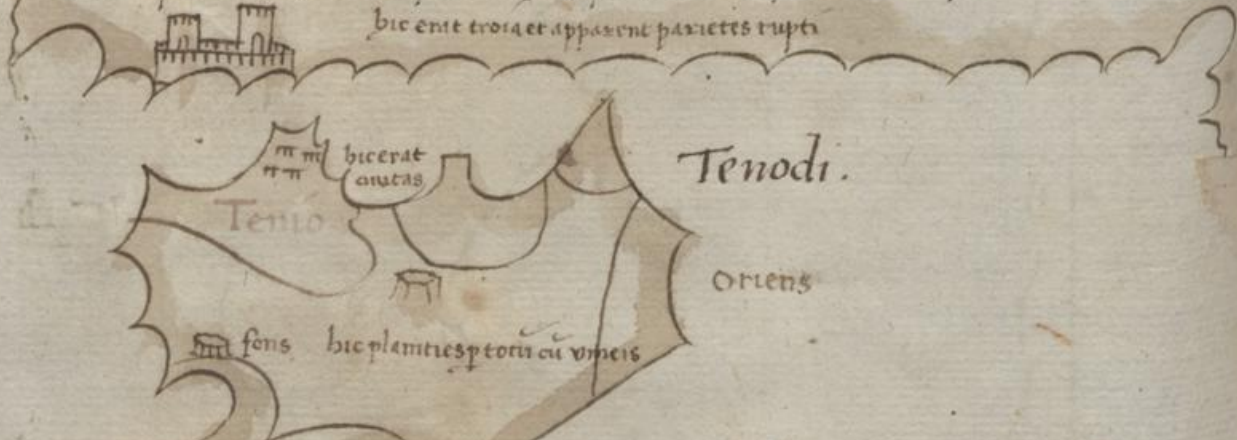 hic erat troia et apparent parietes rupti
hic erat
ciuitas
Tenodi.
Tenio
Oriens
fons hic planities p totū cū vineis